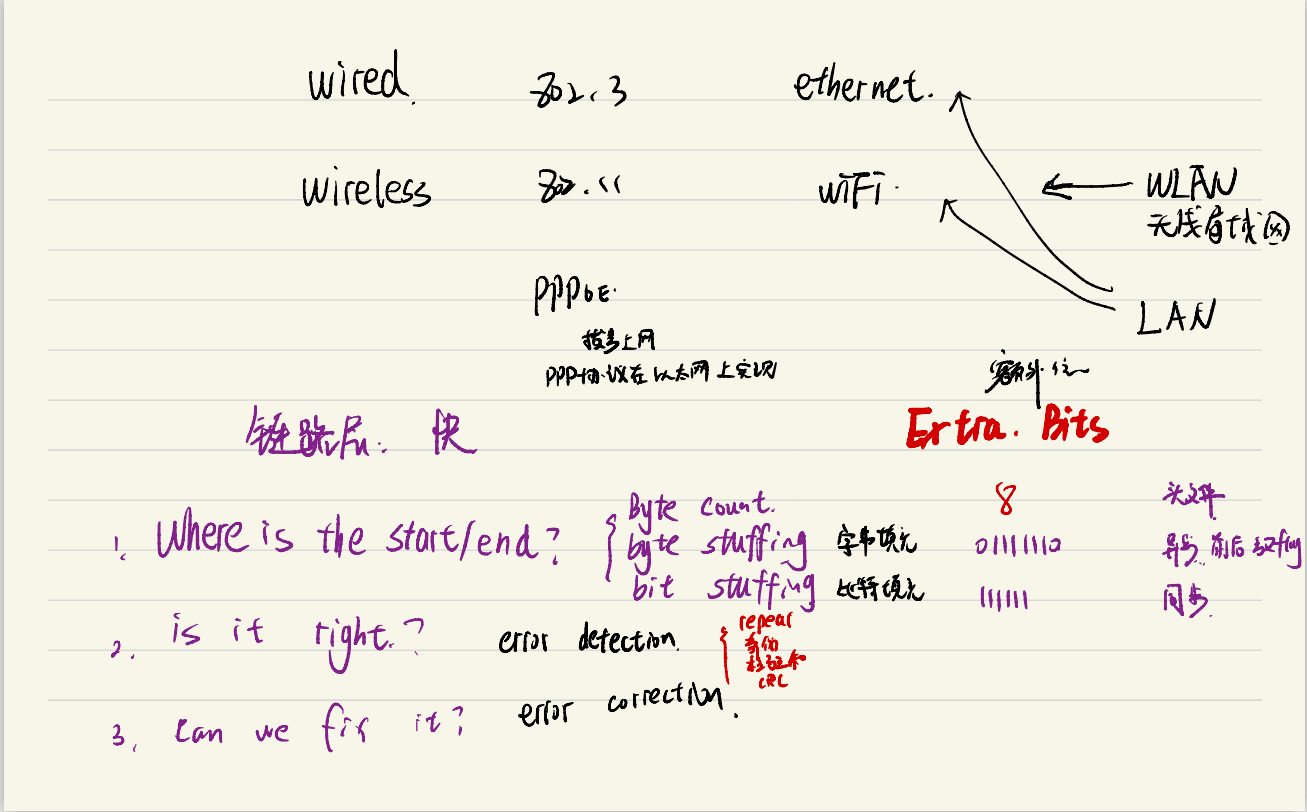 wired. 802.3 ethernet.
wireless 802.11 WiFi. WLAN
无线局域网
PPPoE.
LAN
拨号上网
PPP协议在以太网上实现
额外位
链路层: 快
Extra. Bits
Byte count. 8 头文件
1. Where is the start/end? byte stuffing 字节填充 01111110 异步 前后 flag
bit stuffing 比特填充 111111 同步
2. is it right.? error detection.
repear
奇偶
校验和
CRC
3. Can we fix it? error correction.